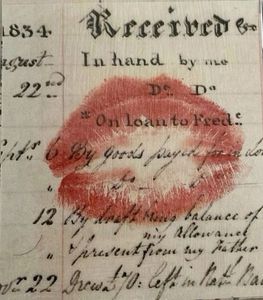 1834. Received &c
August In hand by me
22nd Do Do
"On loan to Fredc
Sept 6 By goods payed from
"
12 By draft being balance of
my Allowance
" present from my Father
Novr 22 Drew left in